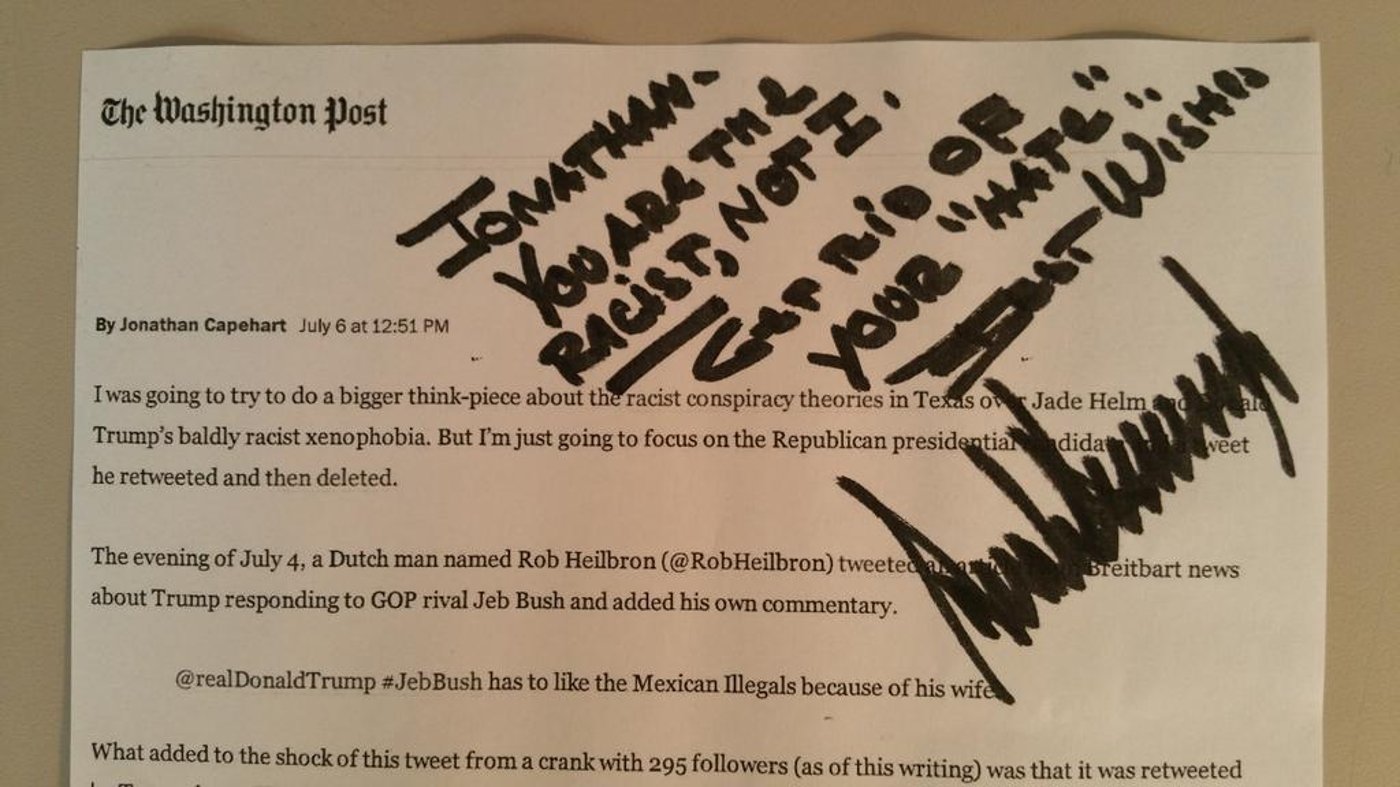 The Washington Post
JONATHAN-
YOU ARE THE
RACIST, NOT I.
GET RID OF
YOUR "HATE".
BEST WISHES
By Jonathan Capehart July 6 at 12:51 PM
I was going to try to do a bigger think-piece about the racist conspiracy theories in Texas over Jade Helm and Donald
Trump's baldly racist xenophobia. But I'm just going to focus on the Republican presidential tweet
he retweeted and then deleted.
The evening of July 4, a Dutch man named Rob Heilbron (@RobHeilbron) tweeted Breitbart news
about Trump responding to GOP rival Jeb Bush and added his own commentary.
@realDonaldTrump #JebBush has to like the Mexican Illegals because of his wife
What added to the shock of this tweet from a crank with 295 followers (as of this writing) was that it was retweeted